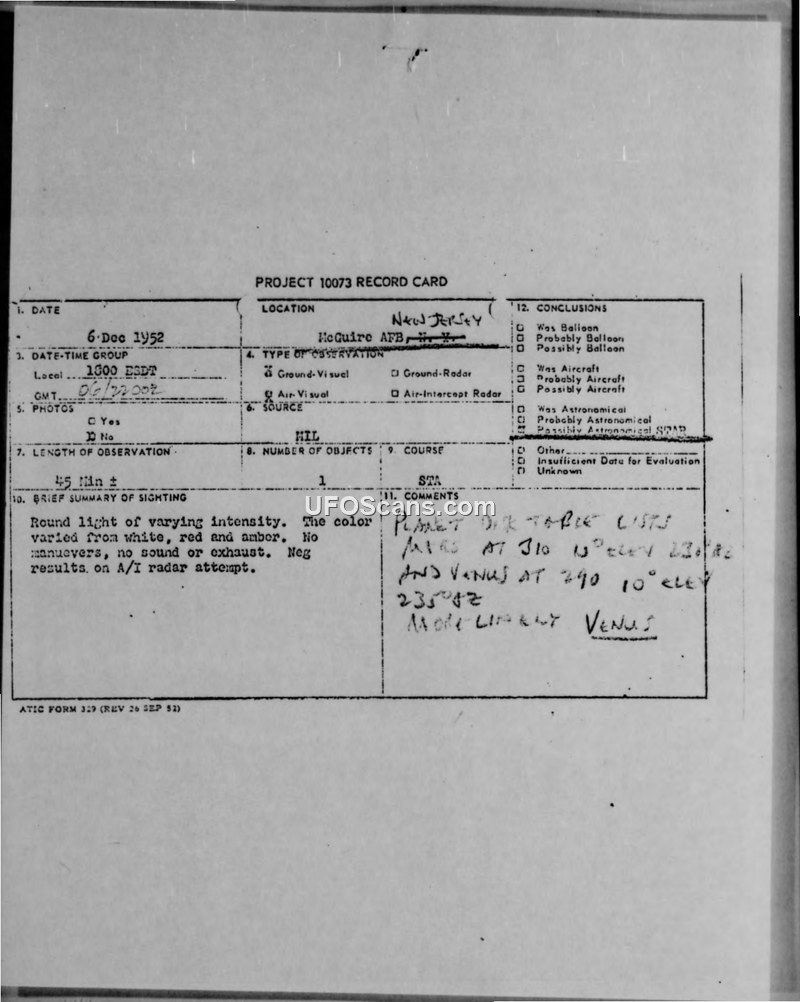 PROJECT 10073 RECORD CARD
1. DATE
6 Dec 1952
LOCATION
NEW JERSEY
McGuire AFB, N. Y.
3. DATE-TIME GROUP
Local 1800 ESDT
GMT 06/2200Z
4. TYPE OF OBSERVATION
Ground-Visual
Ground-Radar
Air-Visual
Air-Intercept Radar
5. PHOTOS
Yes
No
6. SOURCE
MIL
7. LENGTH OF OBSERVATION
45 Min ±
8. NUMBER OF OBJECTS
1
9. COURSE
STA
10. BRIEF SUMMARY OF SIGHTING
Round light of varying intensity. The color
varied from white, red and amber. No
manuevers, no sound or exhaust. Neg
results on A/I radar attempt.
11. COMMENTS
PLANET TABLE LISTS
MARS AT 310 15° ELEV
AND VENUS AT 290 10° ELEV
235° AZ
MOST VENUS
12. CONCLUSIONS
Was Balloon
Probably Balloon
Possibly Balloon
Was Aircraft
Probably Aircraft
Possibly Aircraft
Was Astronomical
Probably Astronomical
Possibly Astronomical STAR
Other
Insufficient Data for Evaluation
Unknown
ATIC FORM 329 (REV 26 SEP 52)
UFOScans.com